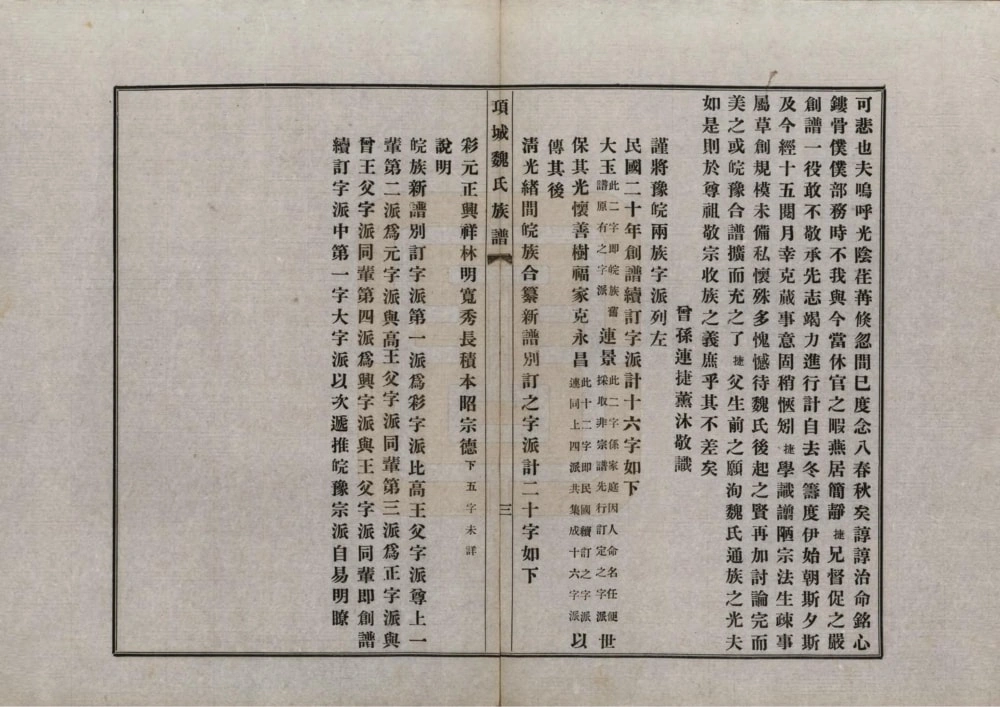 可悲也夫嗚呼光陰荏苒倏忽間已度念八春秋矣諄諄治命銘心
鏤骨僕僕部務時不我與今當休官之暇燕居簡靜捷兄督促之嚴
創譜一役敢不敬承先志竭力進行計自去冬籌度伊始朝斯夕斯
及今經十五閱月幸克蕆事意固稍愜矧捷學識譾陋宗法生疎事
屬草創規模未備私懷殊多愧憾待魏氏後起之賢再加討論完而
美之或皖豫合譜擴而充之了捷父生前之願洵魏氏通族之光夫
如是則於尊祖敬宗收族之義庶乎其不差矣
曾孫連捷薰沐敬識
謹將豫皖兩族字派列左
民國二十年創譜續訂字派計十六字如下
大玉此二字即皖族舊譜原有之字派連景此二字係家庭因人命名任便採取非宗譜先行訂定之字派世
保其光懷善樹福家克永昌此十二字即民國續訂之字派連同上四派共集成十六字派以
傳其後
清光緒間皖族合纂新譜別訂之字派計二十字如下
項城魏氏族譜
三
彩元正興祥林明寬秀長積本昭宗德下五字未詳
說明
皖族新譜別訂字派第一派爲彩字派比高王父字派尊上一
輩第二派爲元字派與高王父字派同輩第三派爲正字派與
曾王父字派同輩第四派爲興字派與王父字派同輩即創譜
續訂字派中第一字大字派以次遞推皖豫宗派自易明瞭